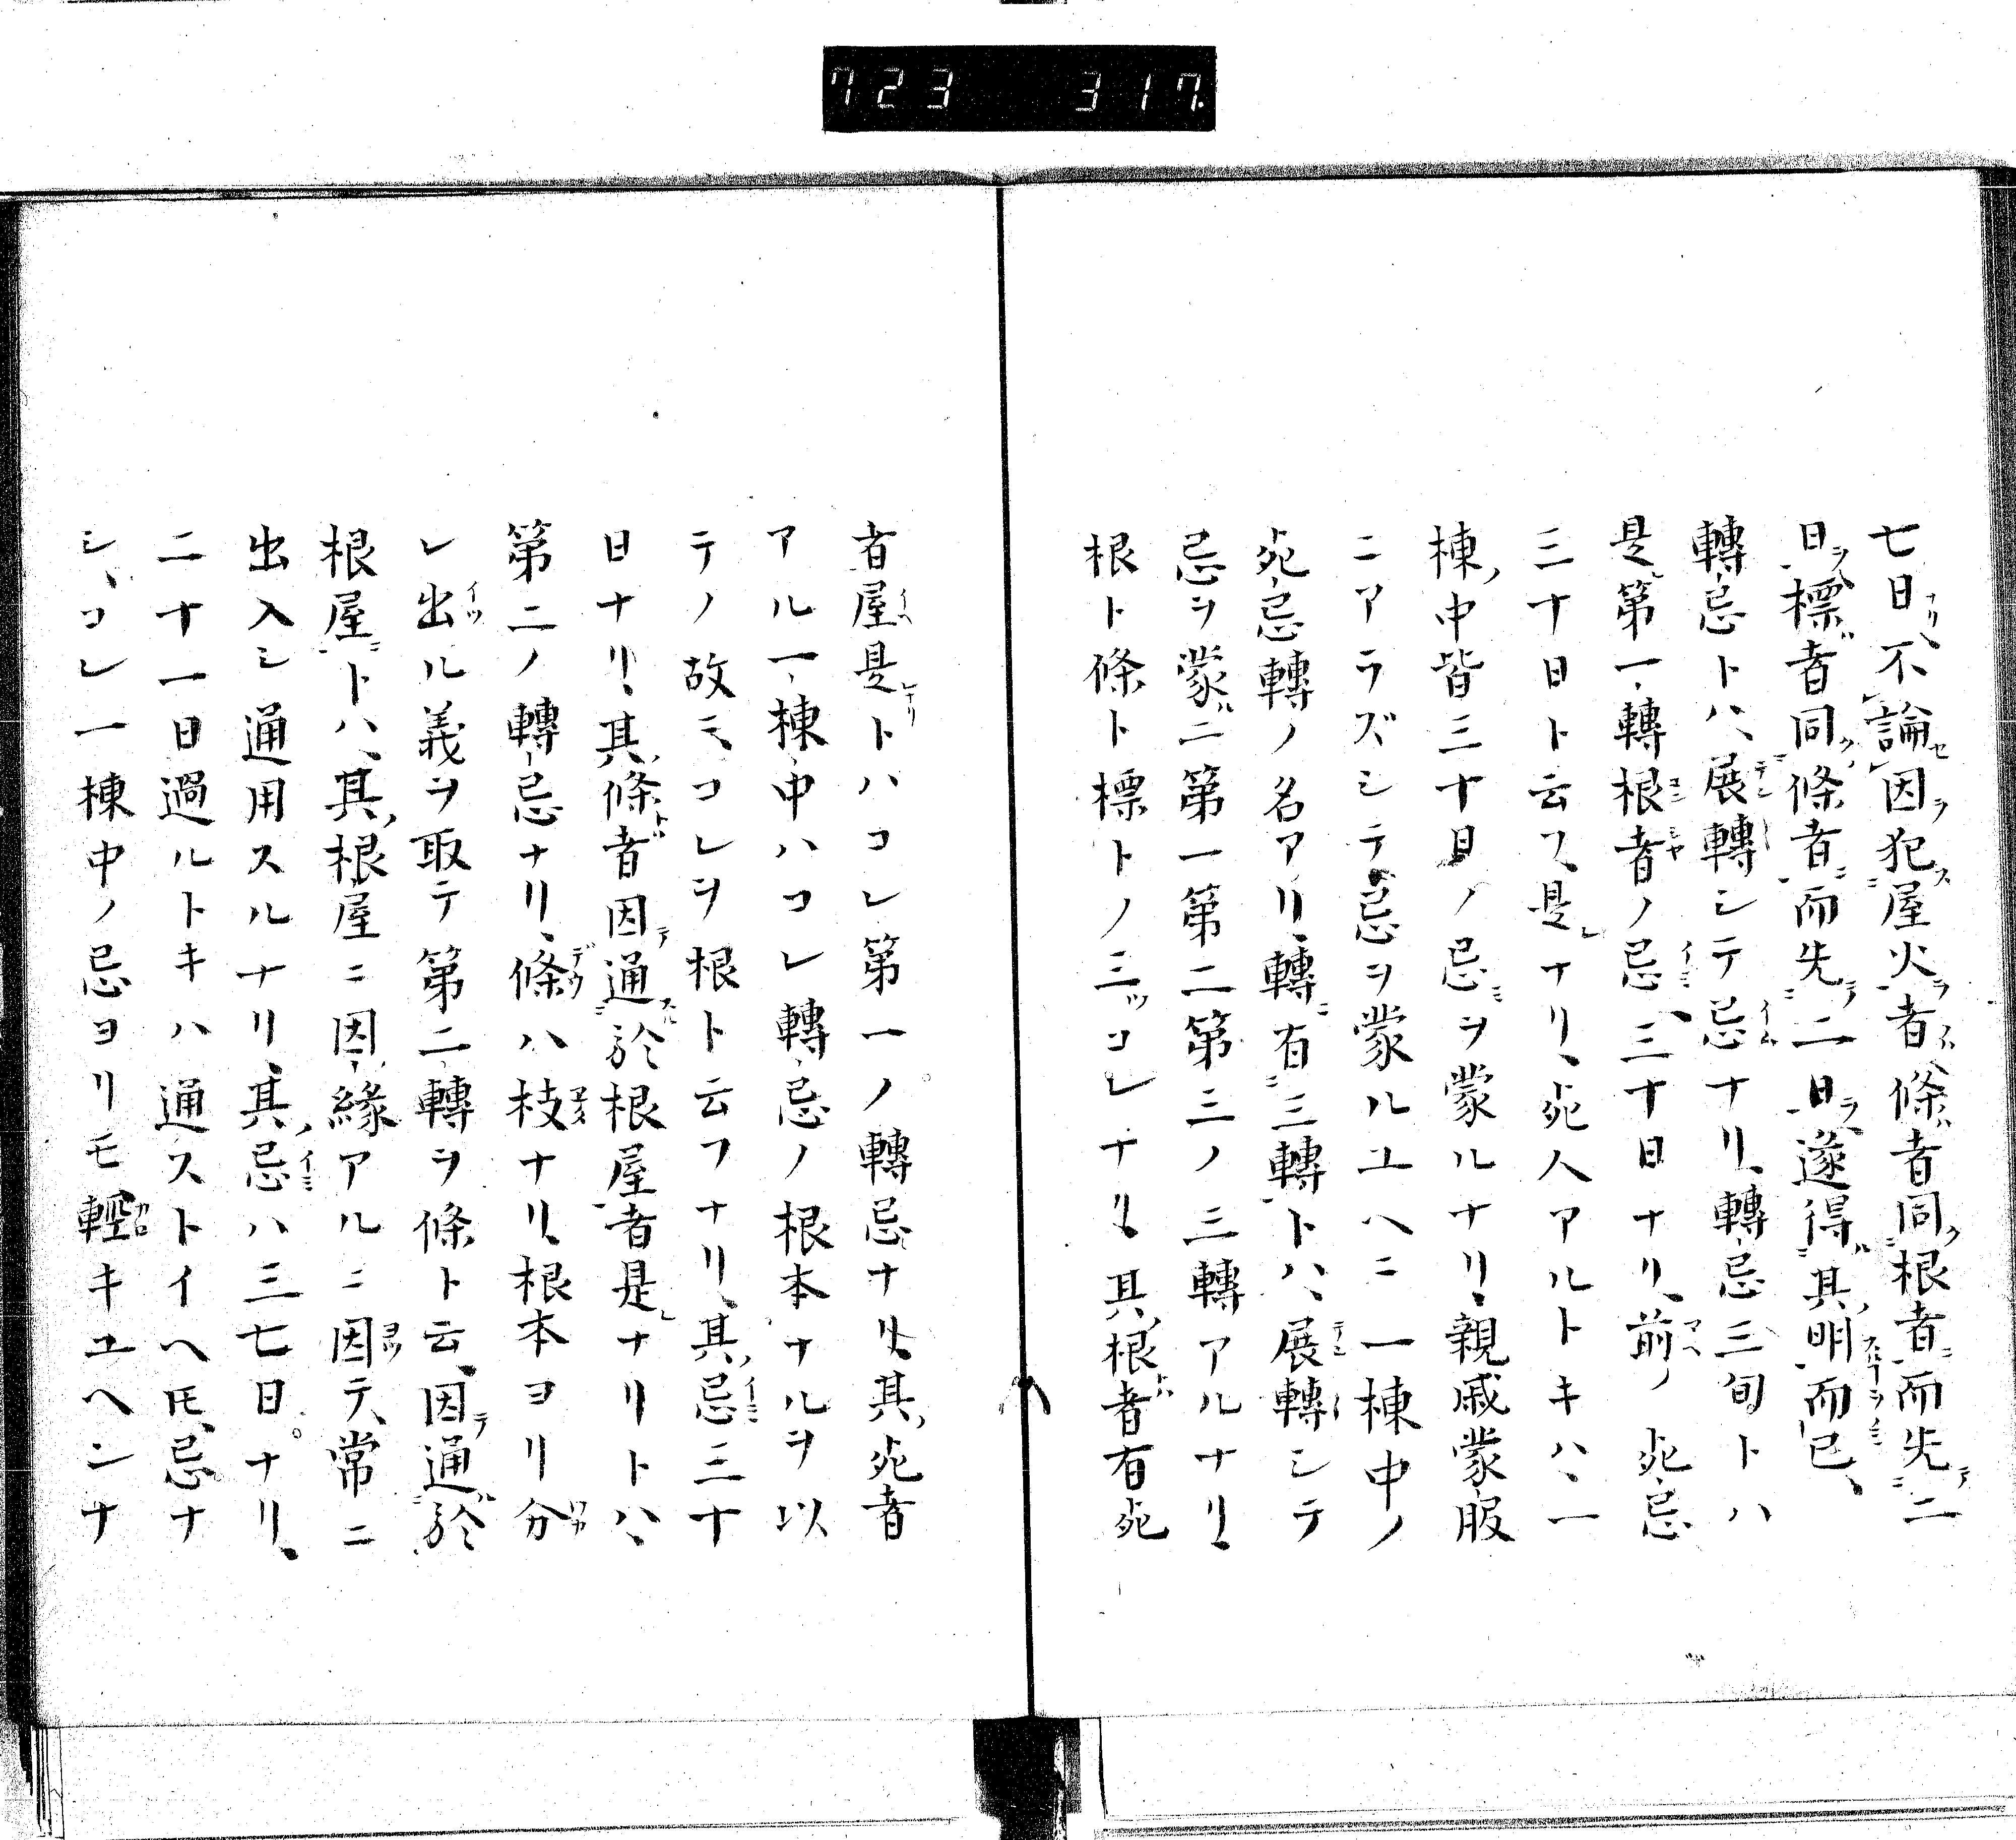 723 317
七日不論因犯屋火者條者同根者而先二
日標者同條者而先二日遂得其明而已、
轉忌トハ、展轉シテ忌ナリ、轉忌三旬トハ
是第一轉根者ノ忌、三十日ナリ、前ノ死忌
三十日ト云フ、是ナリ、死人アルトキハ、一
棟中皆三十日ノ忌ヲ蒙ルナリ、親戚蒙服
ニアラズシテ忌ヲ蒙ルユヘニ一棟中ノ
死忌轉ノ名アリ、轉有三轉トハ、展轉シテ
忌ヲ蒙ニ第一第二第三ノ三轉アルナリ、
根ト條ト標トノ三ツコレナリ、其根者有死
者屋是トハコレ第一ノ轉忌ナリ、其死者
アル一棟中ハコレ轉忌ノ根本ナルヲ以
テノ故ニ、コレヲ根ト云フナリ、其忌三十
日ナリ、其條者因通於根屋者是ナリトハ、
第二ノ轉忌ナリ、條ハ枝ナリ、根本ヨリ分
レ出ル義ヲ取テ第二轉ヲ條ト云、因通於
根屋トハ、其根屋ニ因緣アルニ因テ、常ニ
出入シ通用スルナリ、其忌ハ三七日ナリ、
二十一日過ルトキハ通ストイヘ𪜈、忌ナ
シ、コレ一棟中ノ忌ヨリモ輕キユヘンナ